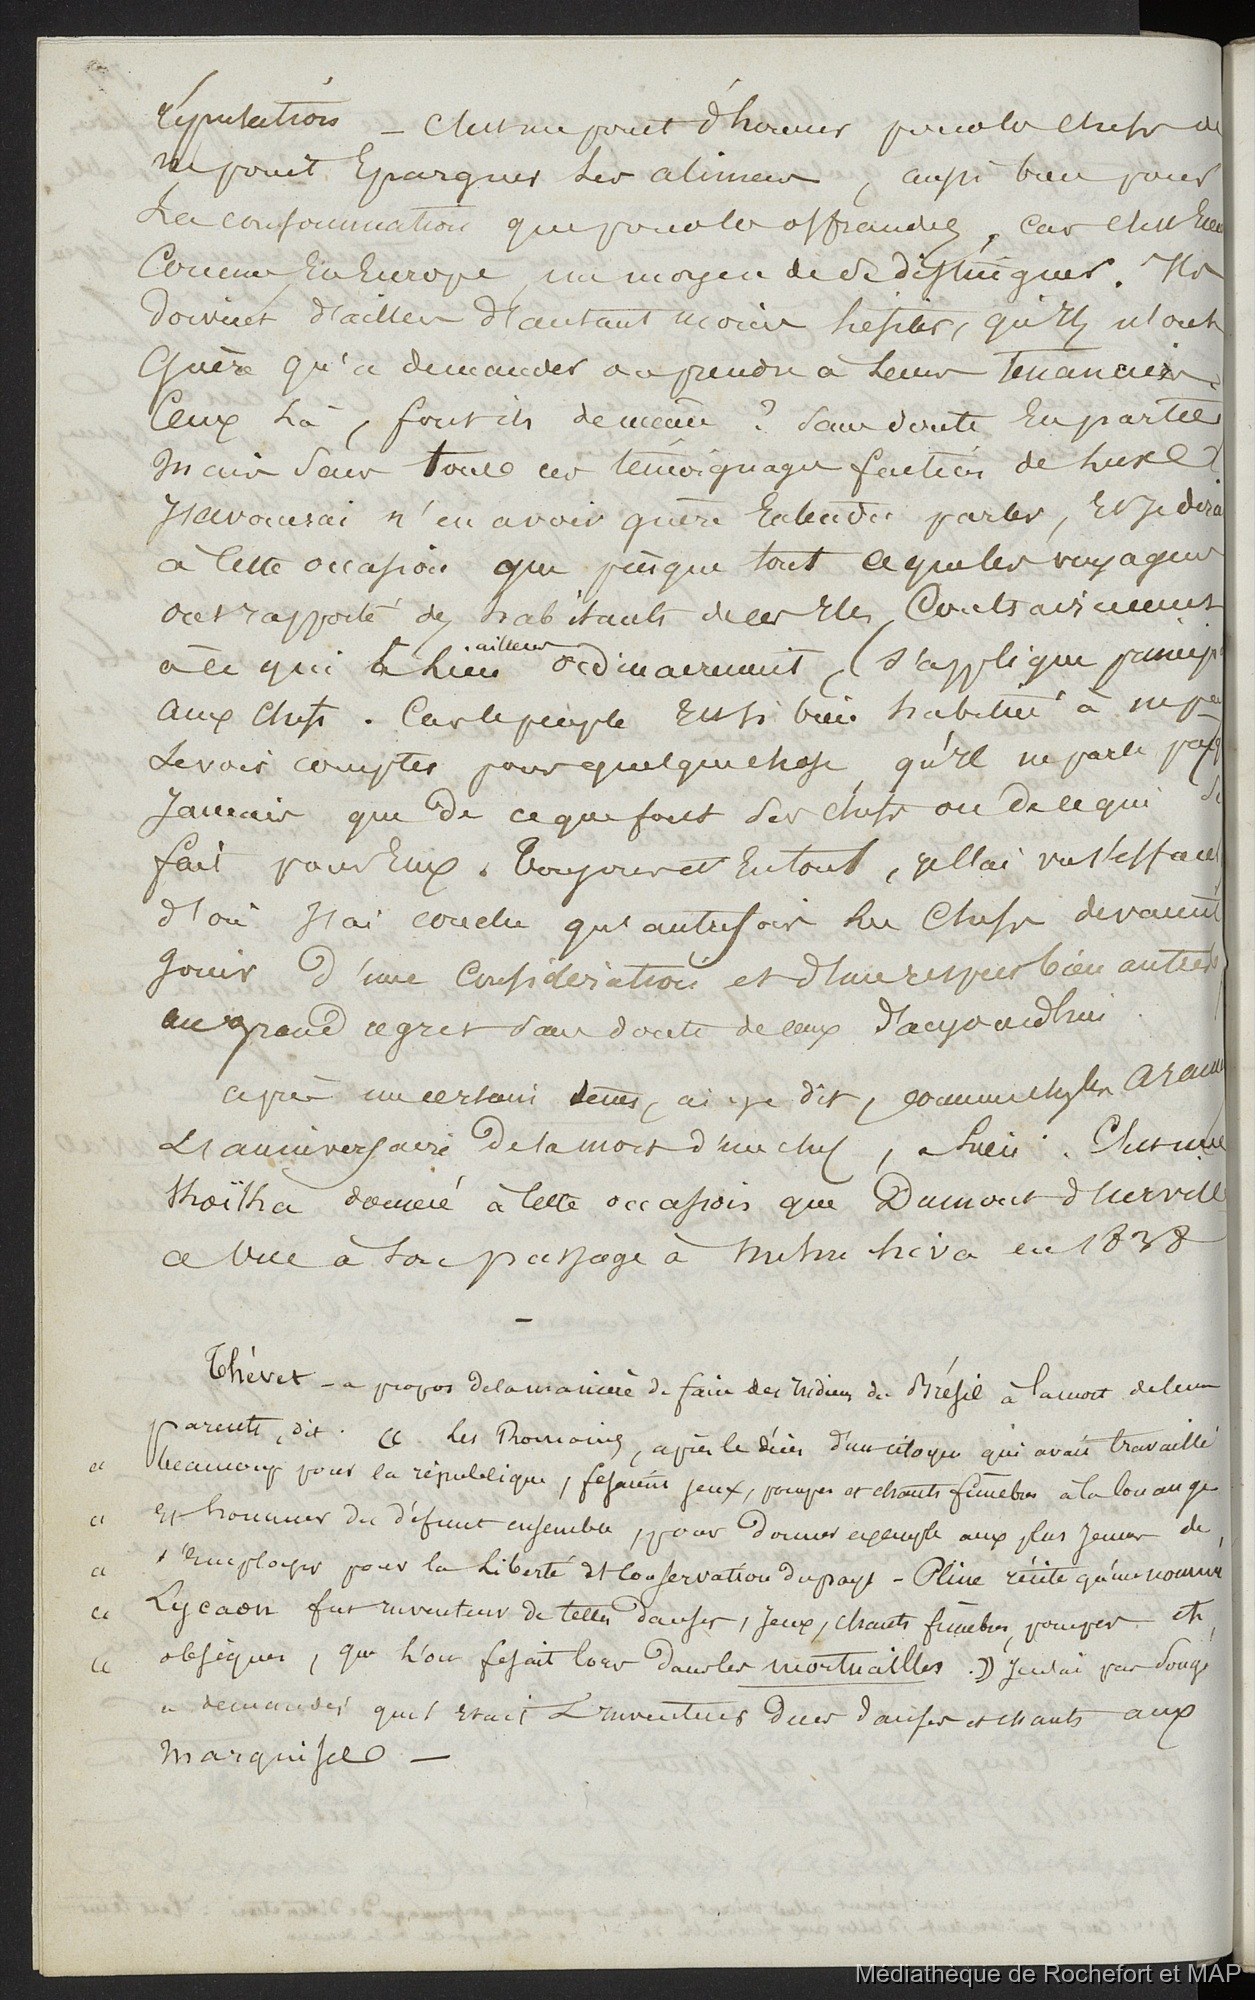 réputation — C'est un point d'honneur pour les chefs de
ne point Epargner les alimens, aussi bien pour
La consommation que pour les offrandes, car c'est bien
Comme En Europe un moyen de se distinguer. Ils
doivent d'ailleurs d'autant moins hésiter, qu'Ils n'ont
Guère qu'a demander ou a prendre a leurs Tenanciers.
Ceux Là, font ils de meme ? Sans doute En partie
Mais Sans tous ces témoignages de luxe
J'avouerai n'en avoir guère Entendu parler, Et Je dirai
à Cette occasion que presque tout ce que les voyageurs
ont rapporté des habitants de ces Iles, Contrairement
à ce qui a lieu ailleurs ordinairement, s'applique
aux chefs. Car le peuple Est si bien habitué à
Se voir compter pour quelque chose, qu'Il ne parle
Jamais que De ce que font Ses chefs ou De ce qui Se
fait pour Eux. Toujours et En tout, je l'ai vu s'effacer
d'où J'ai conclu qu'autrefois les Chefs devaient
Jouir D'une Considération et d'un respect bien autres
au grand regret Sans doute de ceux d'aujourdhui.
après un certain tems, ai-je dit, comme chez les
L'anniversaire De la mort d'un chef, a Lieu. C'est un
Khoïka donné à Cette occasion que Dumont d'Urville
a vue à Son passage à Nuhu hiva en 1838
—
Thévet — a propos de la manière de faire des Indiens du Brésil à la mort de leurs
parents, dit. « Les Romains, après le décès d'un citoyen qui avait travaillé
« beaucoup pour la république, fesaient jeux, pompes et chants funèbres à la louange
« Et honneur du défunt ensemble, pour donner exemple aux plus jeunes de
« s'Employer pour la Liberté Et Conservation du pays — Pline récite qu'un nommé
« Lycaon fut inventeur de telles danses, Jeux, chants funèbres, pompes et
« obsèques, que l'on fesait lors dans les mortuailles. » Je n'ai pas Songé
a demander quel Etait L'Inventeur de ces danses et chants aux
Marquises —
Médiathèque de Rochefort et MAP